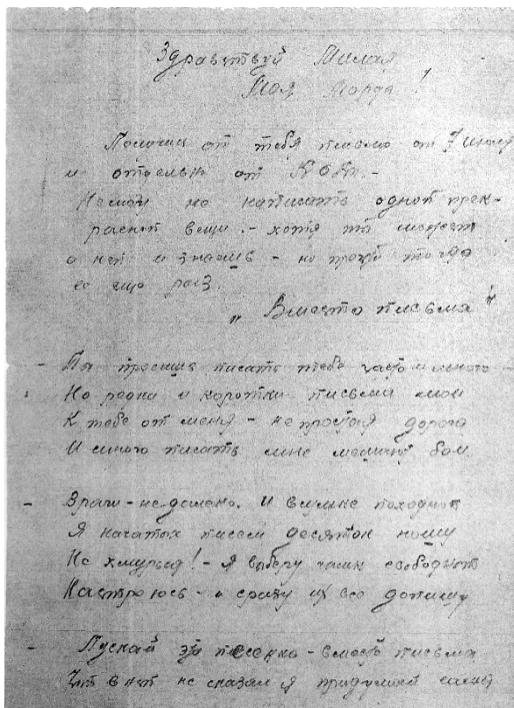 Здравствуй Милая
Моя Марда!
Получил от тебя письмо от 7 июля
и от
Немогу не написать одной прек-
расной вещи. - хотя ты может
о ней и знаешь - но прочти тогда
ее еще раз.
„Вместо письма"
- Ты просишь писать тебе часто и много -
Но редки и коротки письма мои
К тебе от меня - не простая дорога
И много писать мне мешают бои
- Враги - недалеко. И в сумке походной
Я начатых писем десяток ношу
Не хмурься! - Я выберу часик свободный
Настроюсь - и сразу их все допишу
- Пускай эта песенка - вместо письма
Что в ней не сказал я придумай сама